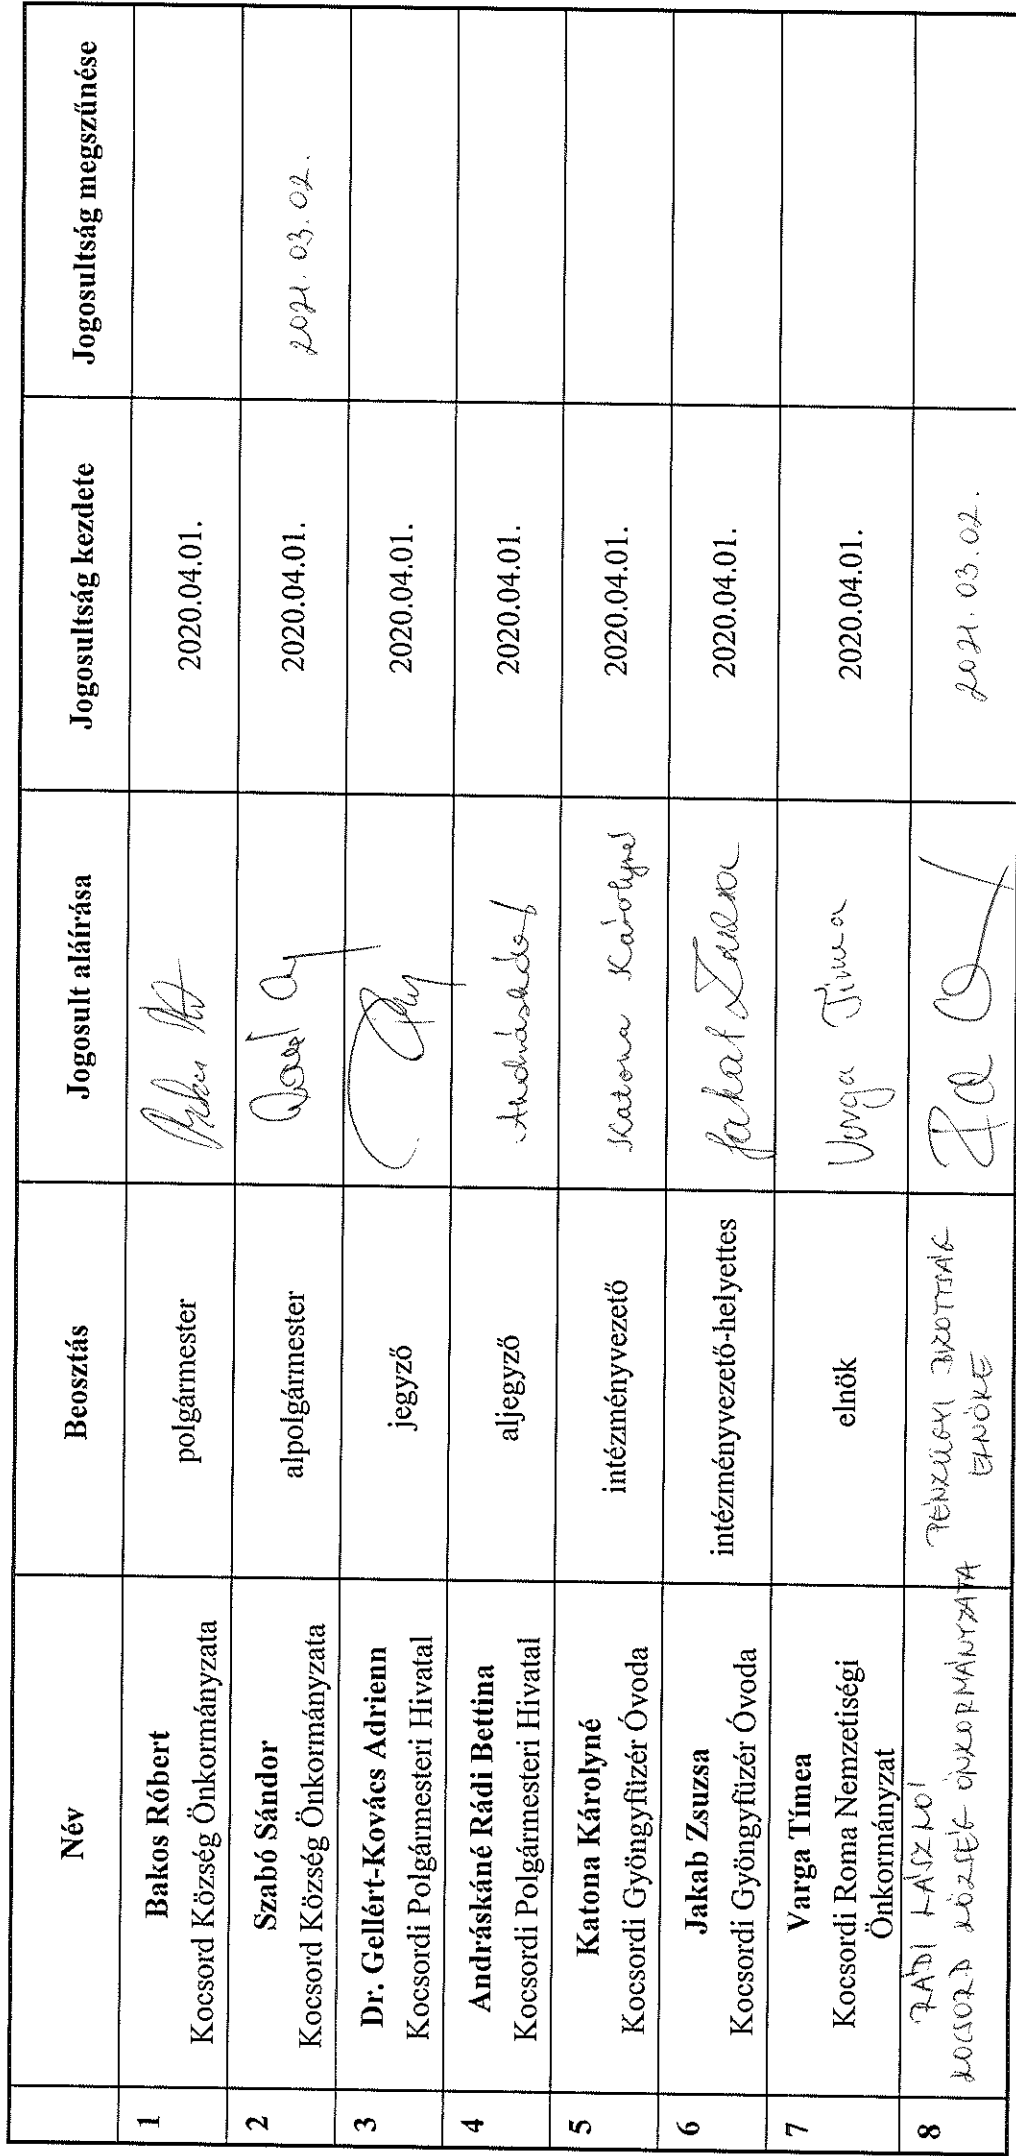 Név Beosztás Jogosult aláírása Jogosultság kezdete Jogosultság megszűnése
1 Bakos Róbert
Kocsord Község Önkormányzata polgármester 2020.04.01.
2 Szabó Sándor
Kocsord Község Önkormányzata alpolgármester 2020.04.01. 2021.03.02.
3 Dr. Gellért-Kovács Adrienn
Kocsordi Polgármesteri Hivatal jegyző 2020.04.01.
4 Andráskáné Rádi Bettina
Kocsordi Polgármesteri Hivatal aljegyző 2020.04.01.
5 Katona Károlyné
Kocsordi Gyöngyfüzér Óvoda intézményvezető Katona Károlyné 2020.04.01.
6 Jakab Zsuzsa
Kocsordi Gyöngyfüzér Óvoda intézményvezető-helyettes Jakab Zsuzsa 2020.04.01.
7 Varga Tímea
Kocsordi Roma Nemzetiségi
Önkormányzat elnök Varga Tímea 2020.04.01.
8 RÁDI LÁSZLÓ
KOCSORD KÖZSÉG ÖNKORMÁNYZATA PÉNZÜGYI BIZOTTSÁG
ELNÖKE 2021.03.02.